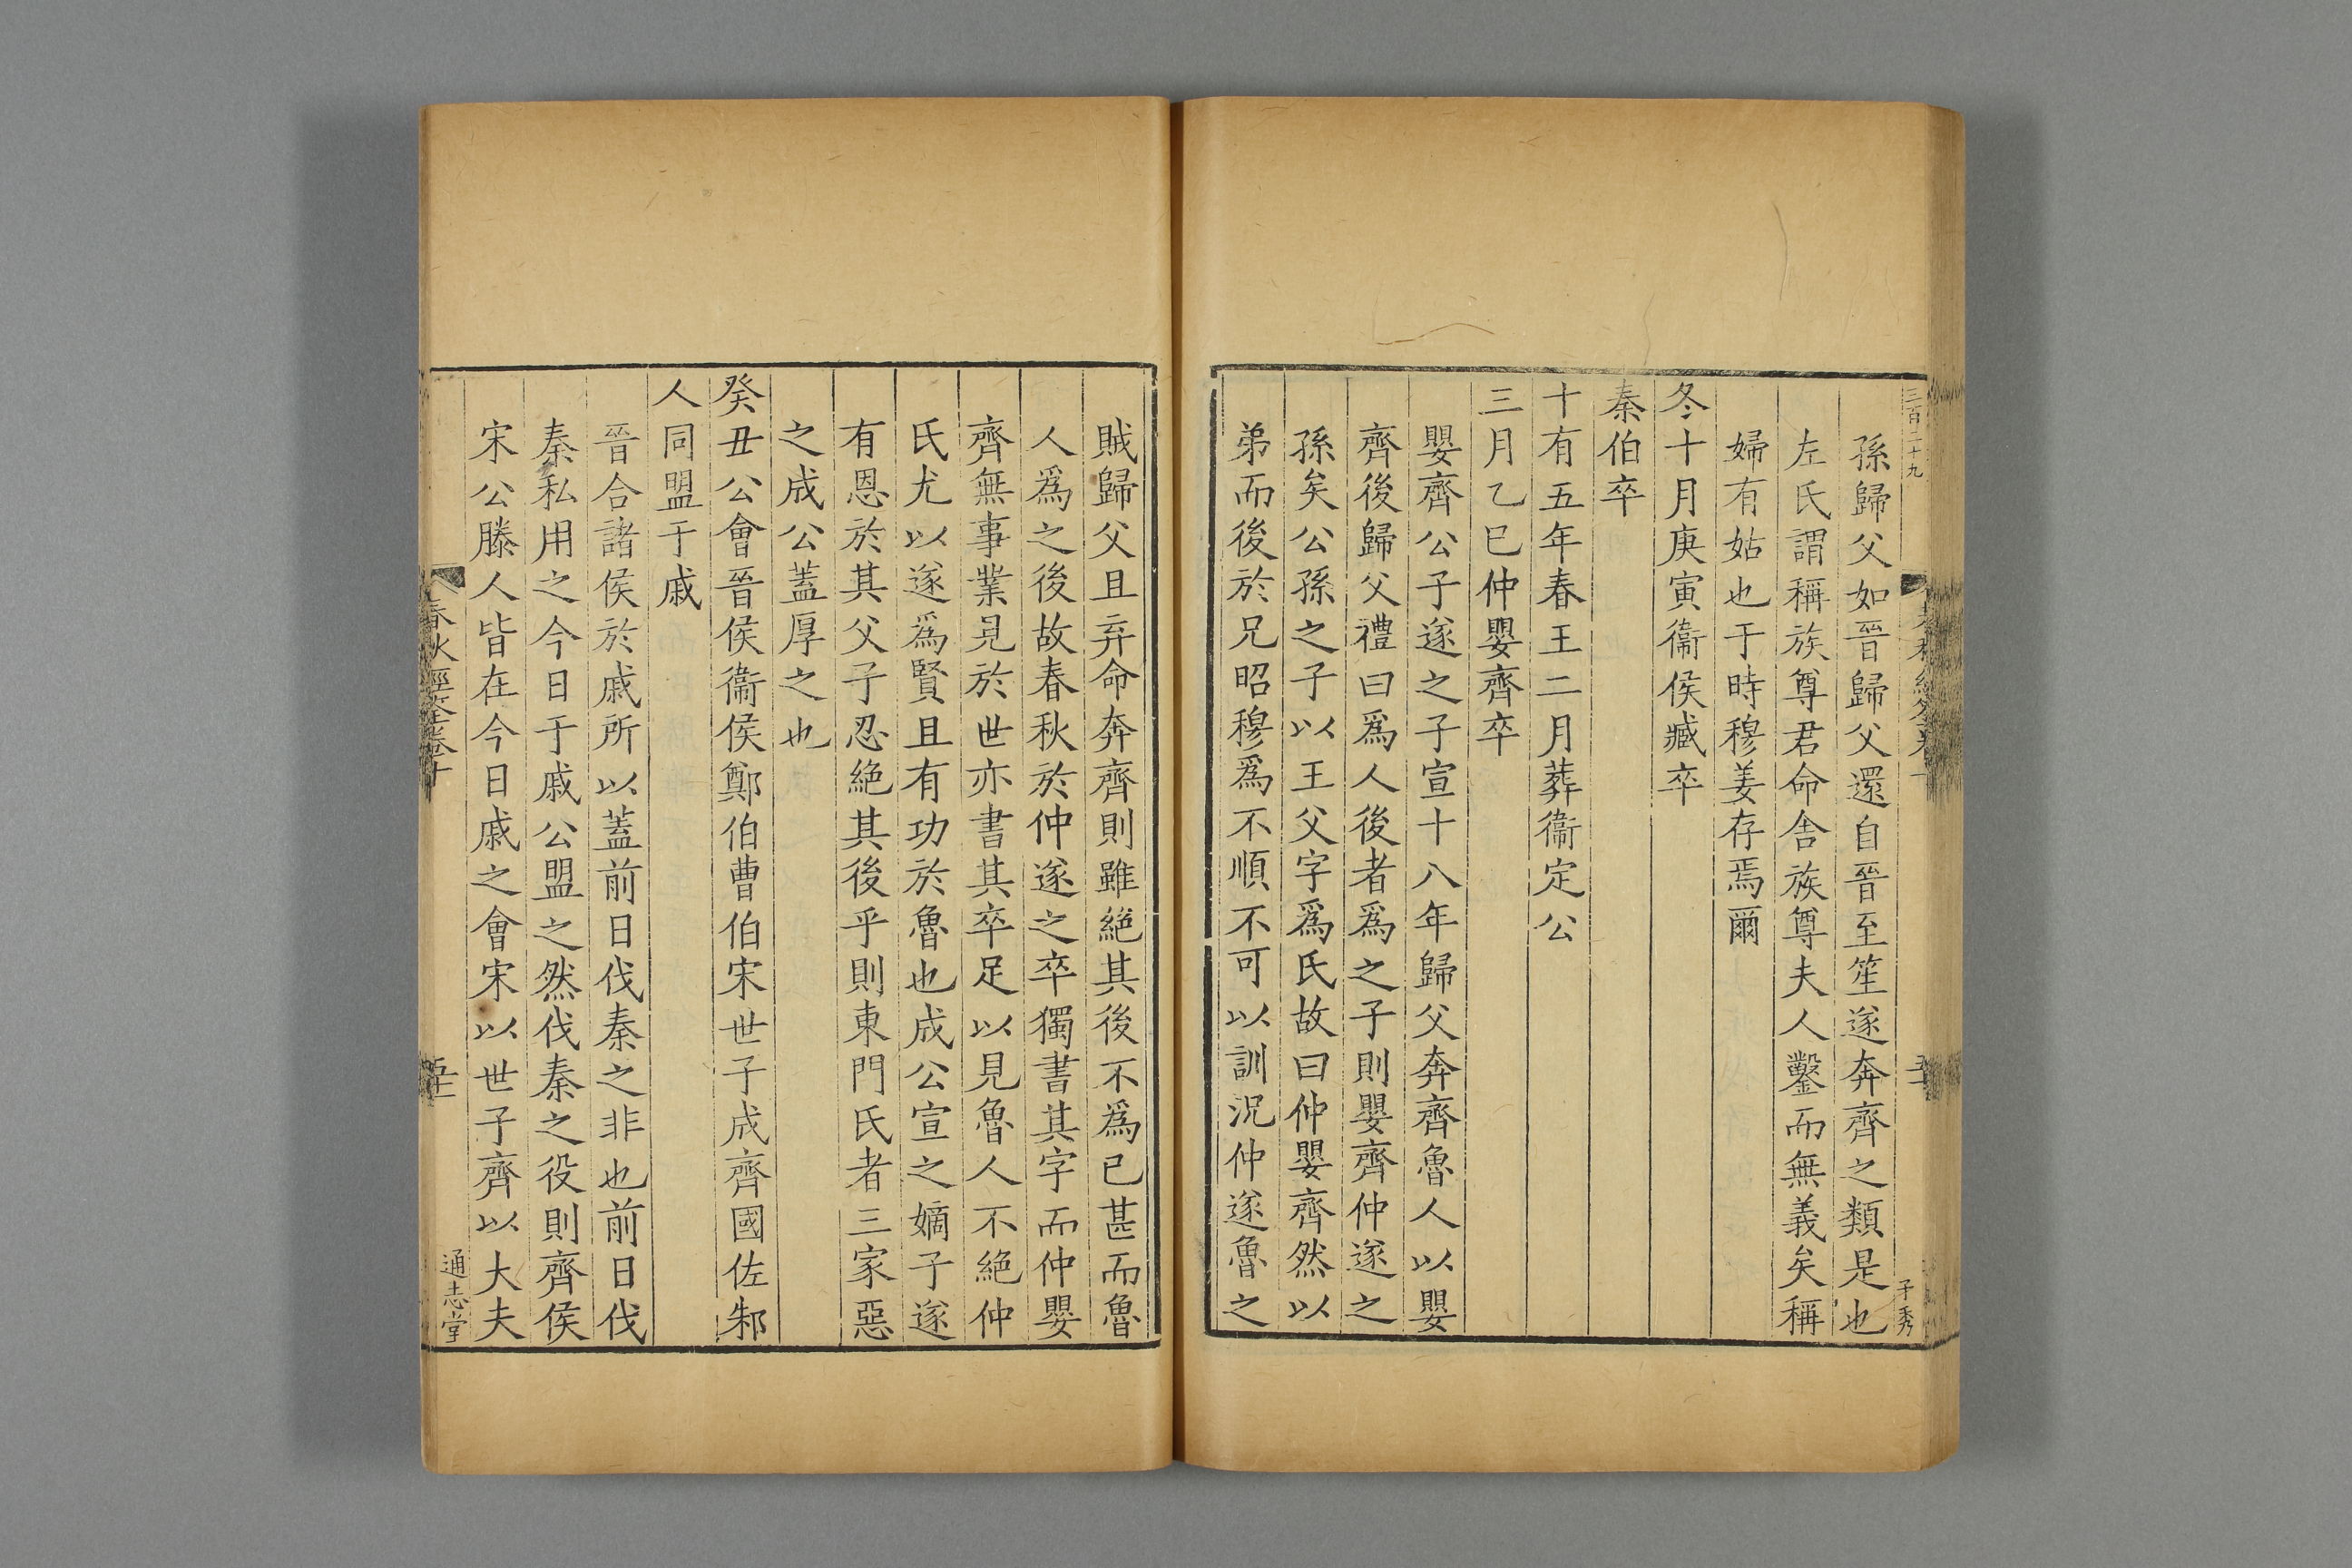 三百二十九
子秀
孫歸父如晉歸父還自晉至笙遂奔齊之類是也
左氏謂稱族尊君命舍族尊夫人鑿而無義矣稱
婦有姑也于時穆姜存焉爾
冬十月庚寅衞侯臧卒
秦伯卒
十有五年春王二月葬衞定公
三月乙巳仲嬰齊卒
嬰齊公子遂之子宣十八年歸父奔齊魯人以嬰
齊後歸父禮曰爲人後者爲之子則嬰齊仲遂之
孫矣公孫之子以王父字爲氏故曰仲嬰齊然以
弟而後於兄昭穆爲不順不可以訓況仲遂魯之
賊歸父且弃命奔齊則雖絕其後不爲已甚而魯
人爲之後故春秋於仲遂之卒獨書其字而仲嬰
齊無事業見於世亦書其卒足以見魯人不絕仲
氏尤以遂爲賢且有功於魯也成公宣之嫡子遂
有恩於其父子忍絕其後乎則東門氏者三家惡
之成公蓋厚之也
癸丑公會晉侯衞侯鄭伯曹伯宋世子成齊國佐邾
人同盟于戚
晉合諸侯於戚所以蓋前日伐秦之非也前日伐
秦私用之今日于戚公盟之然伐秦之役則齊侯
宋公滕人皆在今日戚之會宋以世子齊以大夫
通志堂